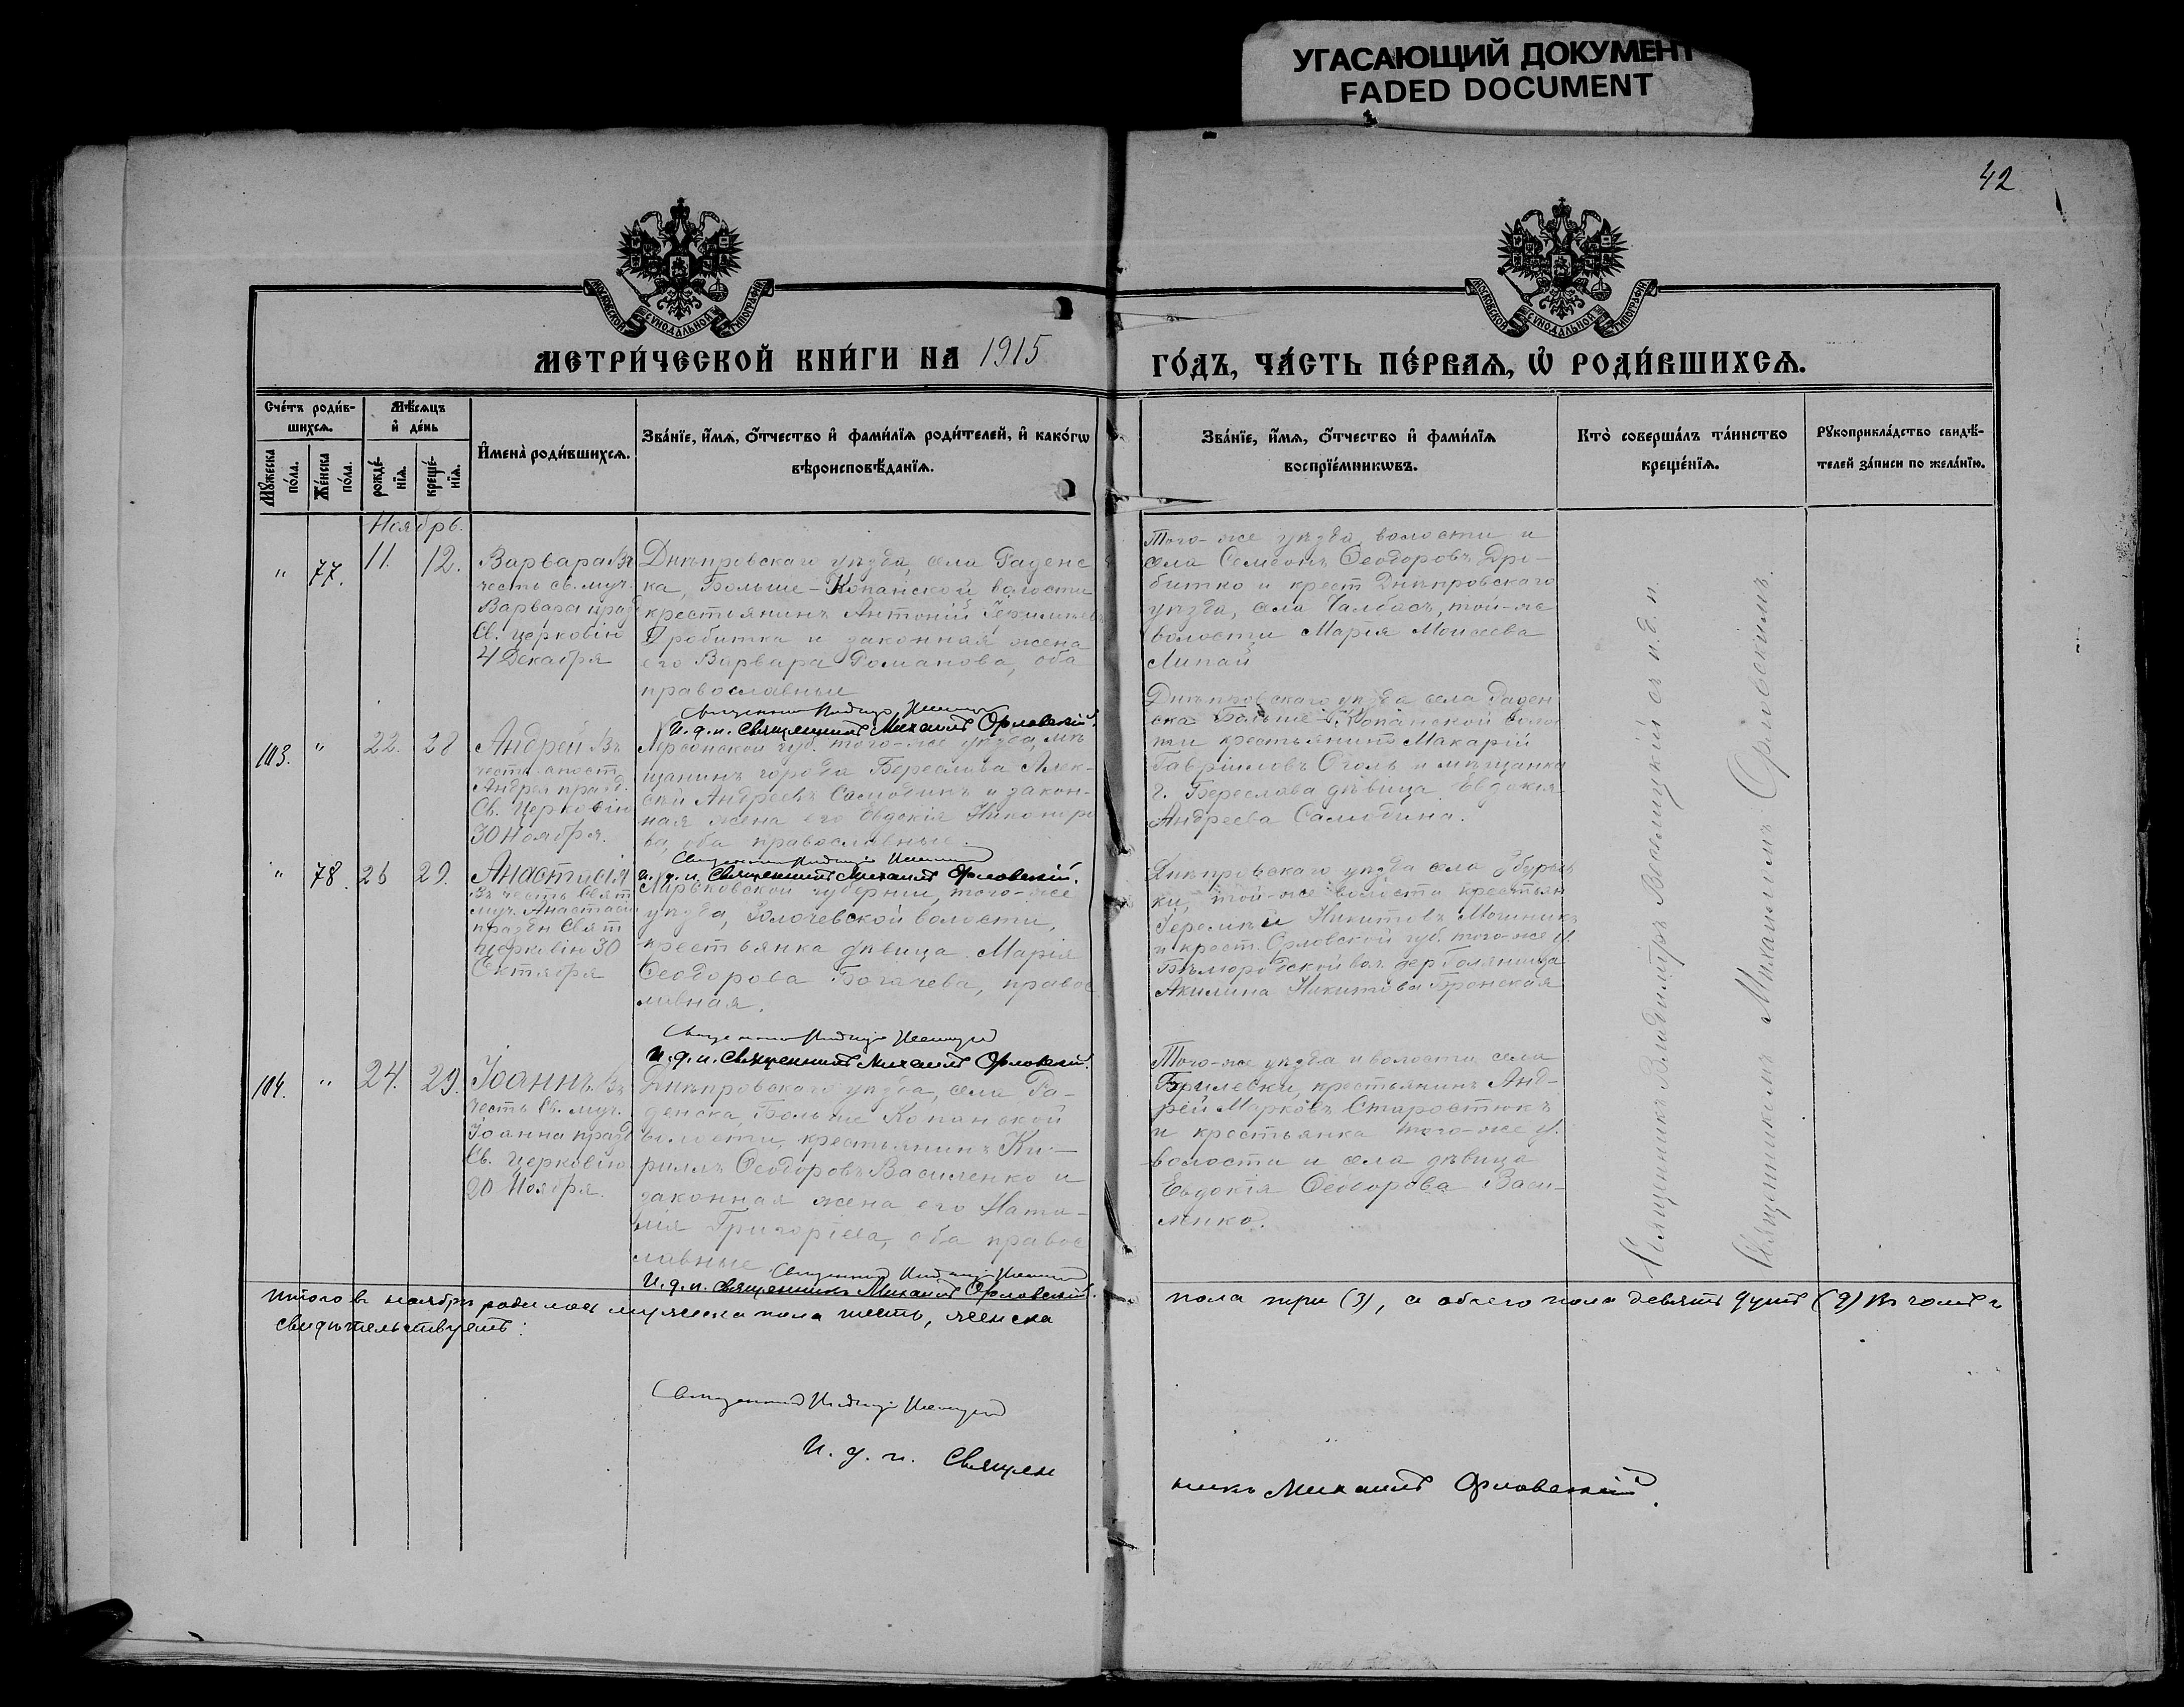 УГАСАЮЩИЙ ДОКУМЕНТ
FADED DOCUMENT
42
МОСКОВСКОЙ СУНОДАЛЬНОЙ ТИПОГРАФІИ
МОСКОВСКОЙ СУНОДАЛЬНОЙ ТИПОГРАФІИ
МЕТРИ́ЧЕСКОЙ КНИ́ГИ НА 1915
ГО́ДЪ, ЧА́СТЬ ПЕ́РВАѦ, Ѡ҆ РОДИ́ВШИХСѦ.
Сче́тъ роди́в-
шихсѧ.
Мꙋ́жеска по́ла.
Же́нска по́ла.
Мѣ́сѧцъ
и҆ де́нь
рожде́-
нїѧ.
креще́-
нїѧ.
И҆мена̀ роди́вшихсѧ.
Зва́нїе, и҆́мѧ, ѻ҆́тчество и҆ фами́лїѧ роди́телей, и҆ како́гѡ
вѣроисповѣ́данїѧ.
Зва́нїе, и҆́мѧ, ѻ҆́тчество и҆ фами́лїѧ
воспрїе́мникѡвъ.
Кто̀ соверша́лъ та́инство
креще́нїѧ.
Рꙋкоприкла́дство свидѣ́-
телей за́писи по жела́нїю.
Ноябрь.
" 77. 11. 12.
Варвара Въ
честь св. муч.
Варвара празд
Св. церковію
4 Декабря
Днѣпровскаго уѣзда, села Раденс
ка, Больше-Копанской волости
крестьянинъ Антоній
Дробитка и законная жена
его Варвара Романова, оба
православные
И. д. п. Священникъ Михаилъ Орловскій.
Того-же уѣзда волости и
села Семеонъ Ѳеодоровъ Дро-
битко и крест Днѣпровскаго
уѣзда, села Чалбасъ, той-же
волости Марія Моисеева
Липай
103. " 22. 28
Андрей Въ
честь апост.
Андрея празд.
Св. Церковію
30 Ноября.
Херсонской губ. того-же уѣзда, мѣ
щанинъ города Береслава Алек-
сѣй Андреевъ Самодинъ и закон-
ная жена его Евдокія Никоноро
ва, оба православные.
И. д. п. Священникъ Михаилъ Орловскій.
Днѣпровскаго уѣзда села Раден
ска Больше-Копанской волос
ти крестьянинъ Макарій
Гавріиловъ Оголь и мѣщанка
г. Береслава дѣвица Евдокія
Андреева Самодина.
" 78. 26 29.
Анастасія
Въ честь Свят
муч. Анастасіи
празден Свят
Церковію 30
Октября
Харьковской губерніи, того-же
уѣзда, Золочевской волости,
крестьянка дѣвица Марія
Ѳеодорова Богачева, правос
лавная.
И. д. п. Священникъ Михаилъ Орловскій.
Днѣпровскаго уѣзда села Збурьев
ки, той-же волости крестьян
Іеремія Никитовъ
и крест. Орловской губ. того-же у.
вол. дер
Акилина Никитова Бронская
104. " 24. 29.
Іоаннъ Въ
честь Св. муч.
Іоанна празд
Св. Церковію
20 Ноября.
Днѣпровскаго уѣзда, села Ра-
денска, Больше Копанской
волости, крестьянинъ Ки-
риллъ Ѳеодоровъ Василенко и
законная жена его Ната-
лія Григоріева, оба правос
лавные
И. д. п. Священникъ Михаилъ Орловскій.
Того-же уѣзда и волости села
Брилевки, крестьянинъ Анд-
рей Марковъ Старостюкъ
и крестьянка того-же у.
волости и села дѣвица
Евдокія Ѳеодорова Васи-
ленко.
Священникъ Владиміръ съ и. д. п.
Священникомъ Михаиломъ Орловскимъ.
Итого въ ноябрѣ родилось мужеска пола шесть, женска
пола три (3), а обоего пола девять душъ (9) въ чемъ и
свидѣтельствуемъ:
И. д. п. Священ
никъ Михаилъ Орловскій.